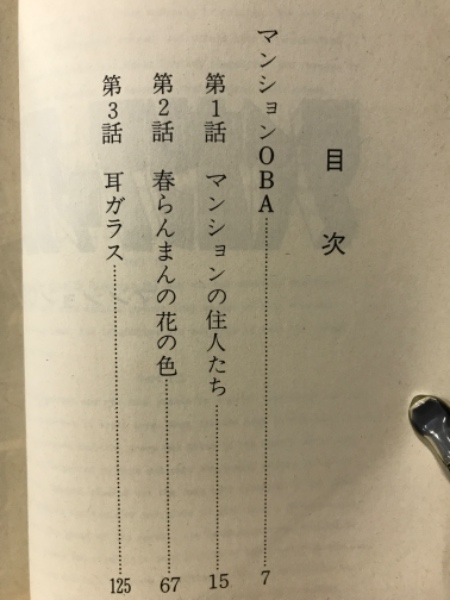 目次
マンションOBA……………………7
第1話 マンションの住人たち……………15
第2話 春らんまんの花の色………………67
第3話 耳ガラス……………………125